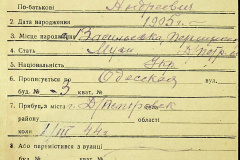 По-батькові Андреевич
2. Дата народження 1905 г.
3. Місце народження Васильевка
4. Стать Муж
5. Національність Укр
6. Прописується по Одесская
буд. № 3 кват. №
7. Прибув з міста г. Д/Петровск
району області
коли 1/III 44 г.
8. Або перемістився з вулиці
буд. № кват. №